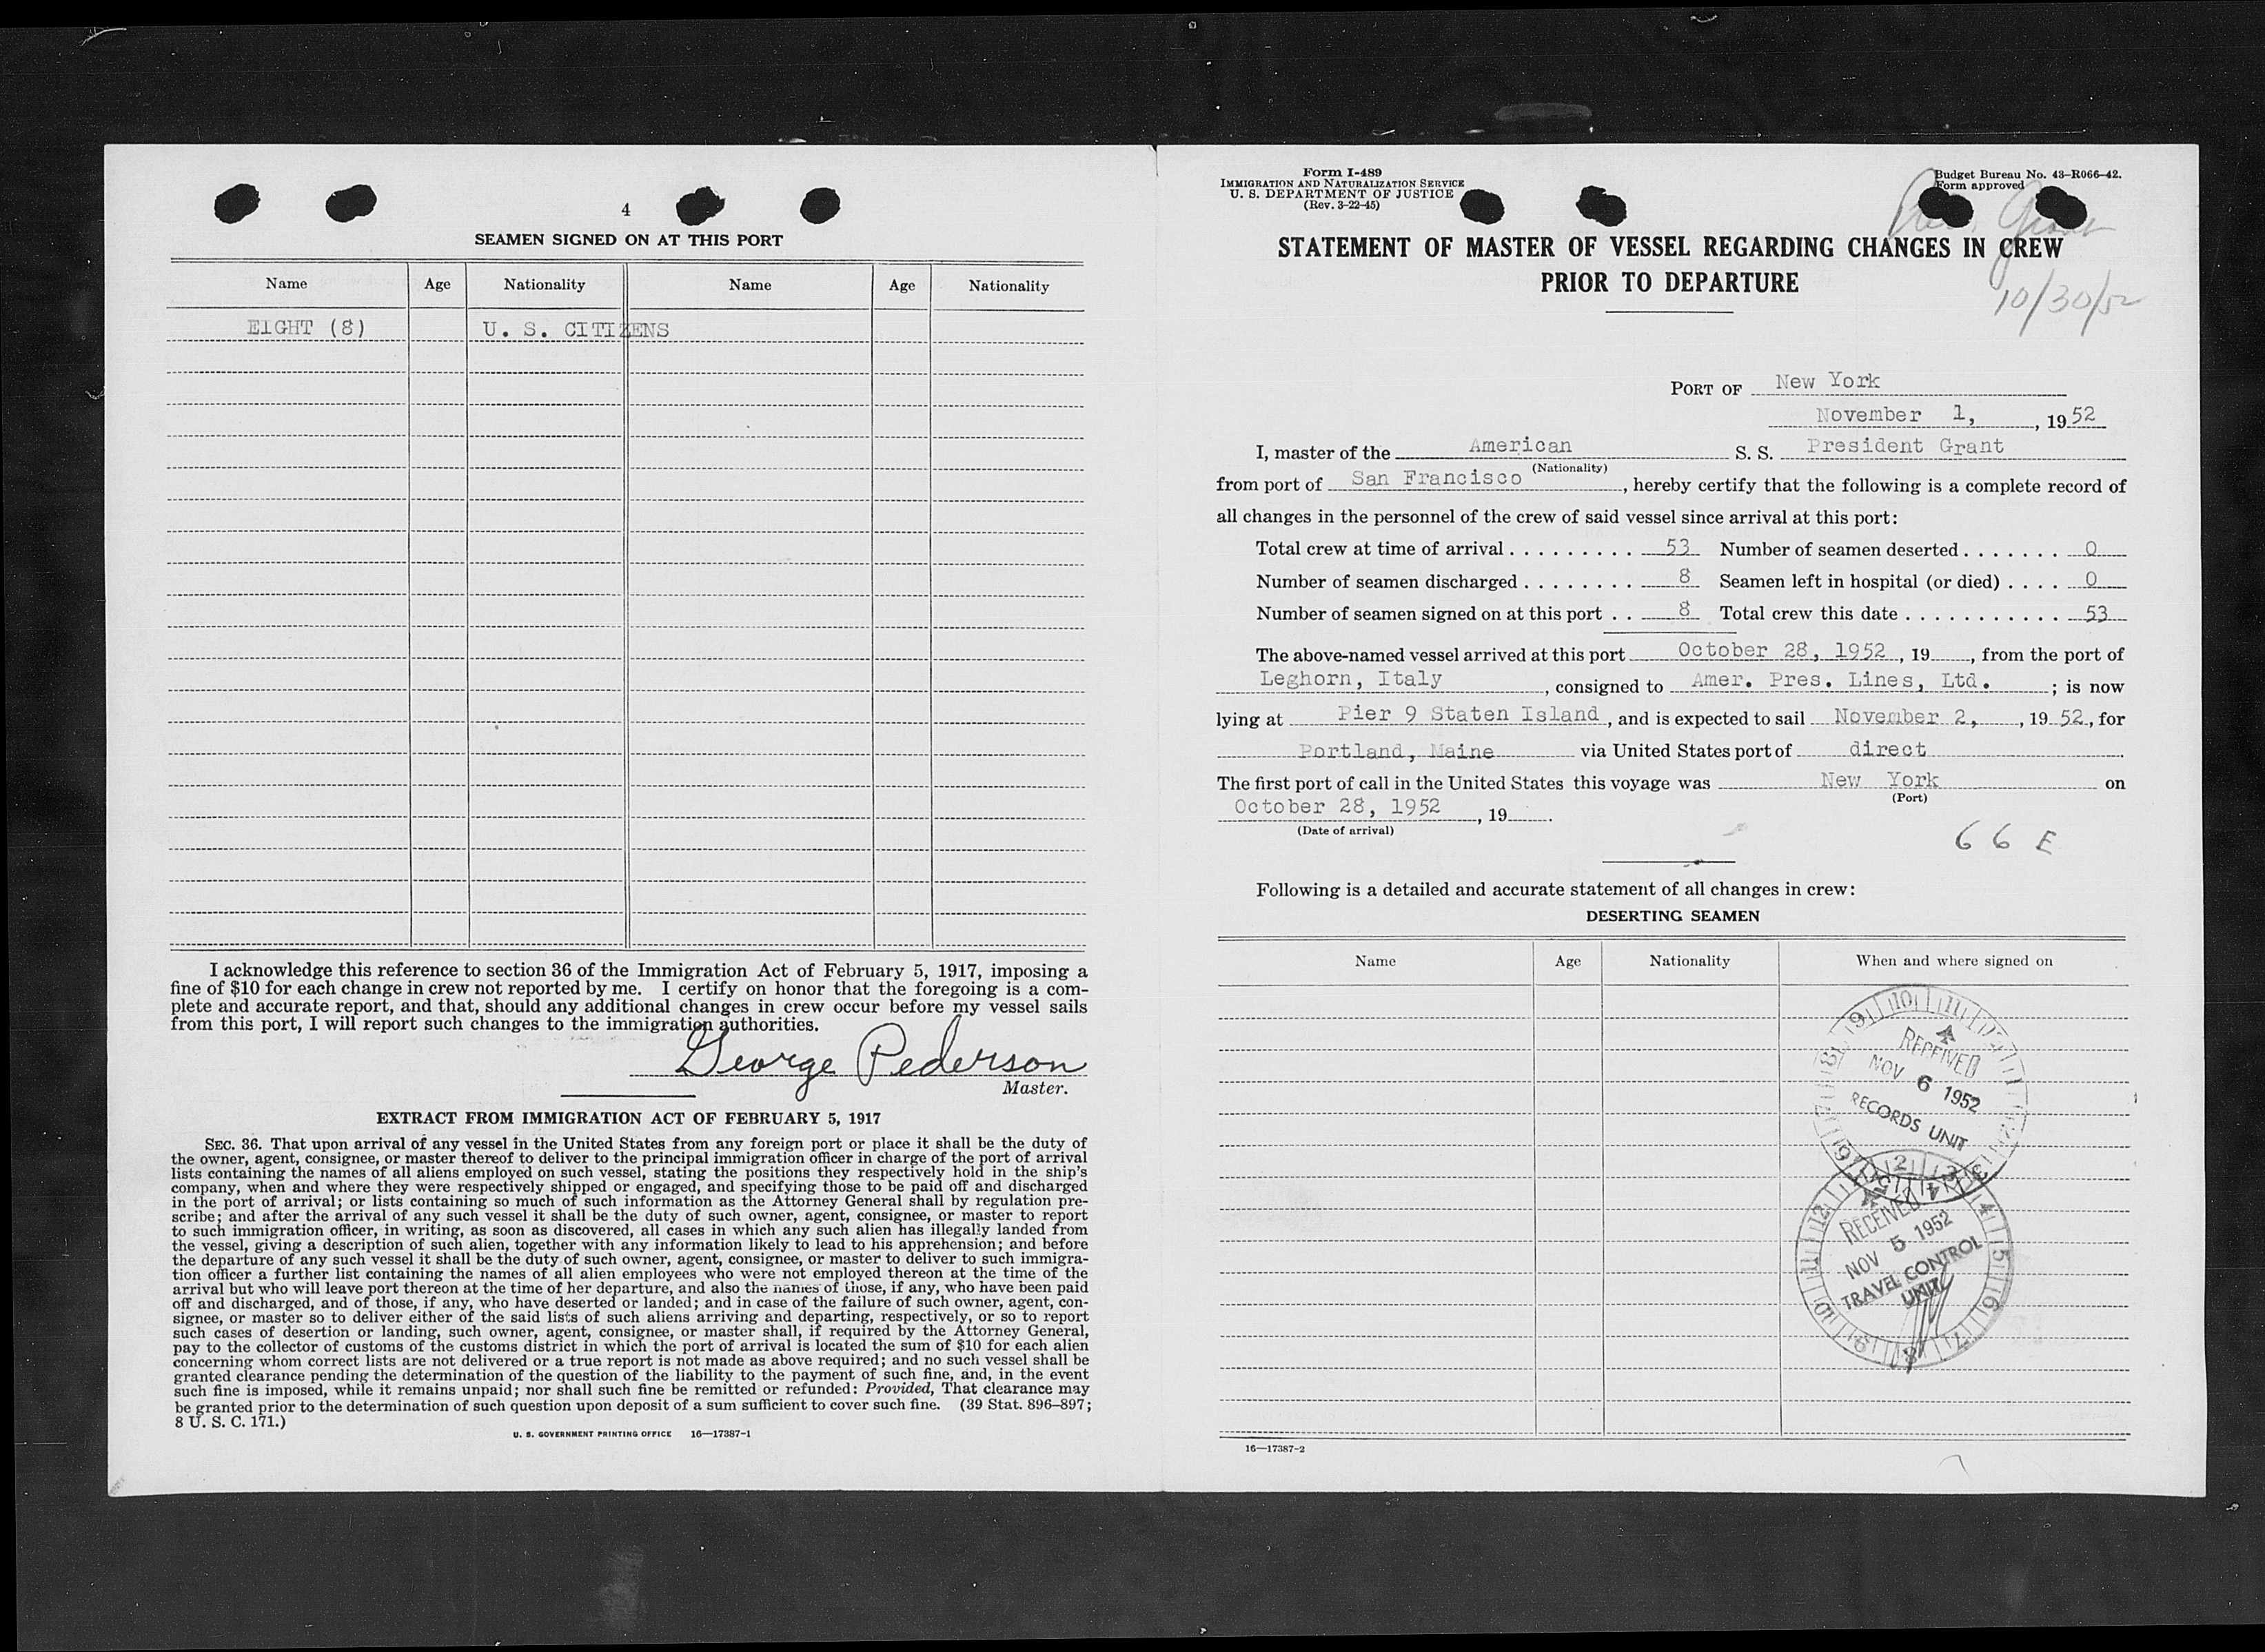 4
SEAMEN SIGNED ON AT THIS PORT
Name Age Nationality Name Age Nationality
EIGHT (8) U. S. CITIZENS
I acknowledge this reference to section 36 of the Immigration Act of February 5, 1917, imposing a
fine of $10 for each change in crew not reported by me. I certify on honor that the foregoing is a com-
plete and accurate report, and that, should any additional changes in crew occur before my vessel sails
from this port, I will report such changes to the immigration authorities.
George Pederson
Master.
EXTRACT FROM IMMIGRATION ACT OF FEBRUARY 5, 1917
SEC. 36. That upon arrival of any vessel in the United States from any foreign port or place it shall be the duty of
the owner, agent, consignee, or master thereof to deliver to the principal immigration officer in charge of the port of arrival
lists containing the names of all aliens employed on such vessel, stating the positions they respectively hold in the ship's
company, when and where they were respectively shipped or engaged, and specifying those to be paid off and discharged
in the port of arrival; or lists containing so much of such information as the Attorney General shall by regulation pre-
scribe; and after the arrival of any such vessel it shall be the duty of such owner, agent, consignee, or master to report
to such immigration officer, in writing, as soon as discovered, all cases in which any such alien has illegally landed from
the vessel, giving a description of such alien, together with any information likely to lead to his apprehension; and before
the departure of any such vessel it shall be the duty of such owner, agent, consignee, or master to deliver to such immigra-
tion officer a further list containing the names of all alien employees who were not employed thereon at the time of the
arrival but who will leave port thereon at the time of her departure, and also the names of those, if any, who have been paid
off and discharged, and of those, if any, who have deserted or landed; and in case of the failure of such owner, agent, con-
signee, or master so to deliver either of the said lists of such aliens arriving and departing, respectively, or so to report
such cases of desertion or landing, such owner, agent, consignee, or master shall, if required by the Attorney General,
pay to the collector of customs of the customs district in which the port of arrival is located the sum of $10 for each alien
concerning whom correct lists are not delivered or a true report is not made as above required; and no such vessel shall be
granted clearance pending the determination of the question of the liability to the payment of such fine, and, in the event
such fine is imposed, while it remains unpaid; nor shall such fine be remitted or refunded: Provided, That clearance may
be granted prior to the determination of such question upon deposit of a sum sufficient to cover such fine. (39 Stat. 896–897;
8 U. S. C. 171.)
U. S. GOVERNMENT PRINTING OFFICE 16—17387-1
Form I-489
IMMIGRATION AND NATURALIZATION SERVICE
U. S. DEPARTMENT OF JUSTICE
(Rev. 3-22-45)
Budget Bureau No. 43-R066-42.
Form approved
Pres. Grant
STATEMENT OF MASTER OF VESSEL REGARDING CHANGES IN CREW
PRIOR TO DEPARTURE
10/30/52
PORT OF New York
November 1, , 19 52
I, master of the American S. S. President Grant
(Nationality)
from port of San Francisco, hereby certify that the following is a complete record of
all changes in the personnel of the crew of said vessel since arrival at this port:
Total crew at time of arrival . . . . . . . . . 53 Number of seamen deserted . . . . . . . 0
Number of seamen discharged . . . . . . . . 8 Seamen left in hospital (or died) . . . . 0
Number of seamen signed on at this port . . 8 Total crew this date . . . . . . . . . . . 53
The above-named vessel arrived at this port October 28, 1952, 19 , from the port of
Leghorn, Italy, consigned to Amer. Pres. Lines, Ltd. ; is now
lying at Pier 9 Staten Island, and is expected to sail November 2, , 19 52, for
Portland, Maine via United States port of direct
The first port of call in the United States this voyage was New York on
(Port)
October 28, 1952, 19 .
(Date of arrival)
66 E
Following is a detailed and accurate statement of all changes in crew:
DESERTING SEAMEN
Name Age Nationality When and where signed on
RECEIVED
NOV 6 1952
RECORDS UNIT
RECEIVED
NOV 5 1952
TRAVEL CONTROL
UNIT
16—17387-2